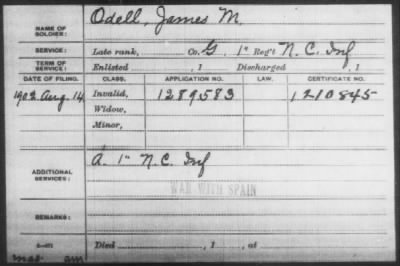 NAME OF SOLDIER: Odell, James M.
SERVICE: Late rank, Co. G, 1" Reg't N.C. Inf
TERM OF SERVICE: Enlisted , 1 Discharged , 1
DATE OF FILING. CLASS. APPLICATION NO. LAW. CERTIFICATE NO.
1902 Aug. 14 Invalid, 1289583 1210845
Widow,
Minor,
ADDITIONAL SERVICES: A. 1" N.C. Inf
WAR WITH SPAIN
REMARKS:
Died , 1 , at
am